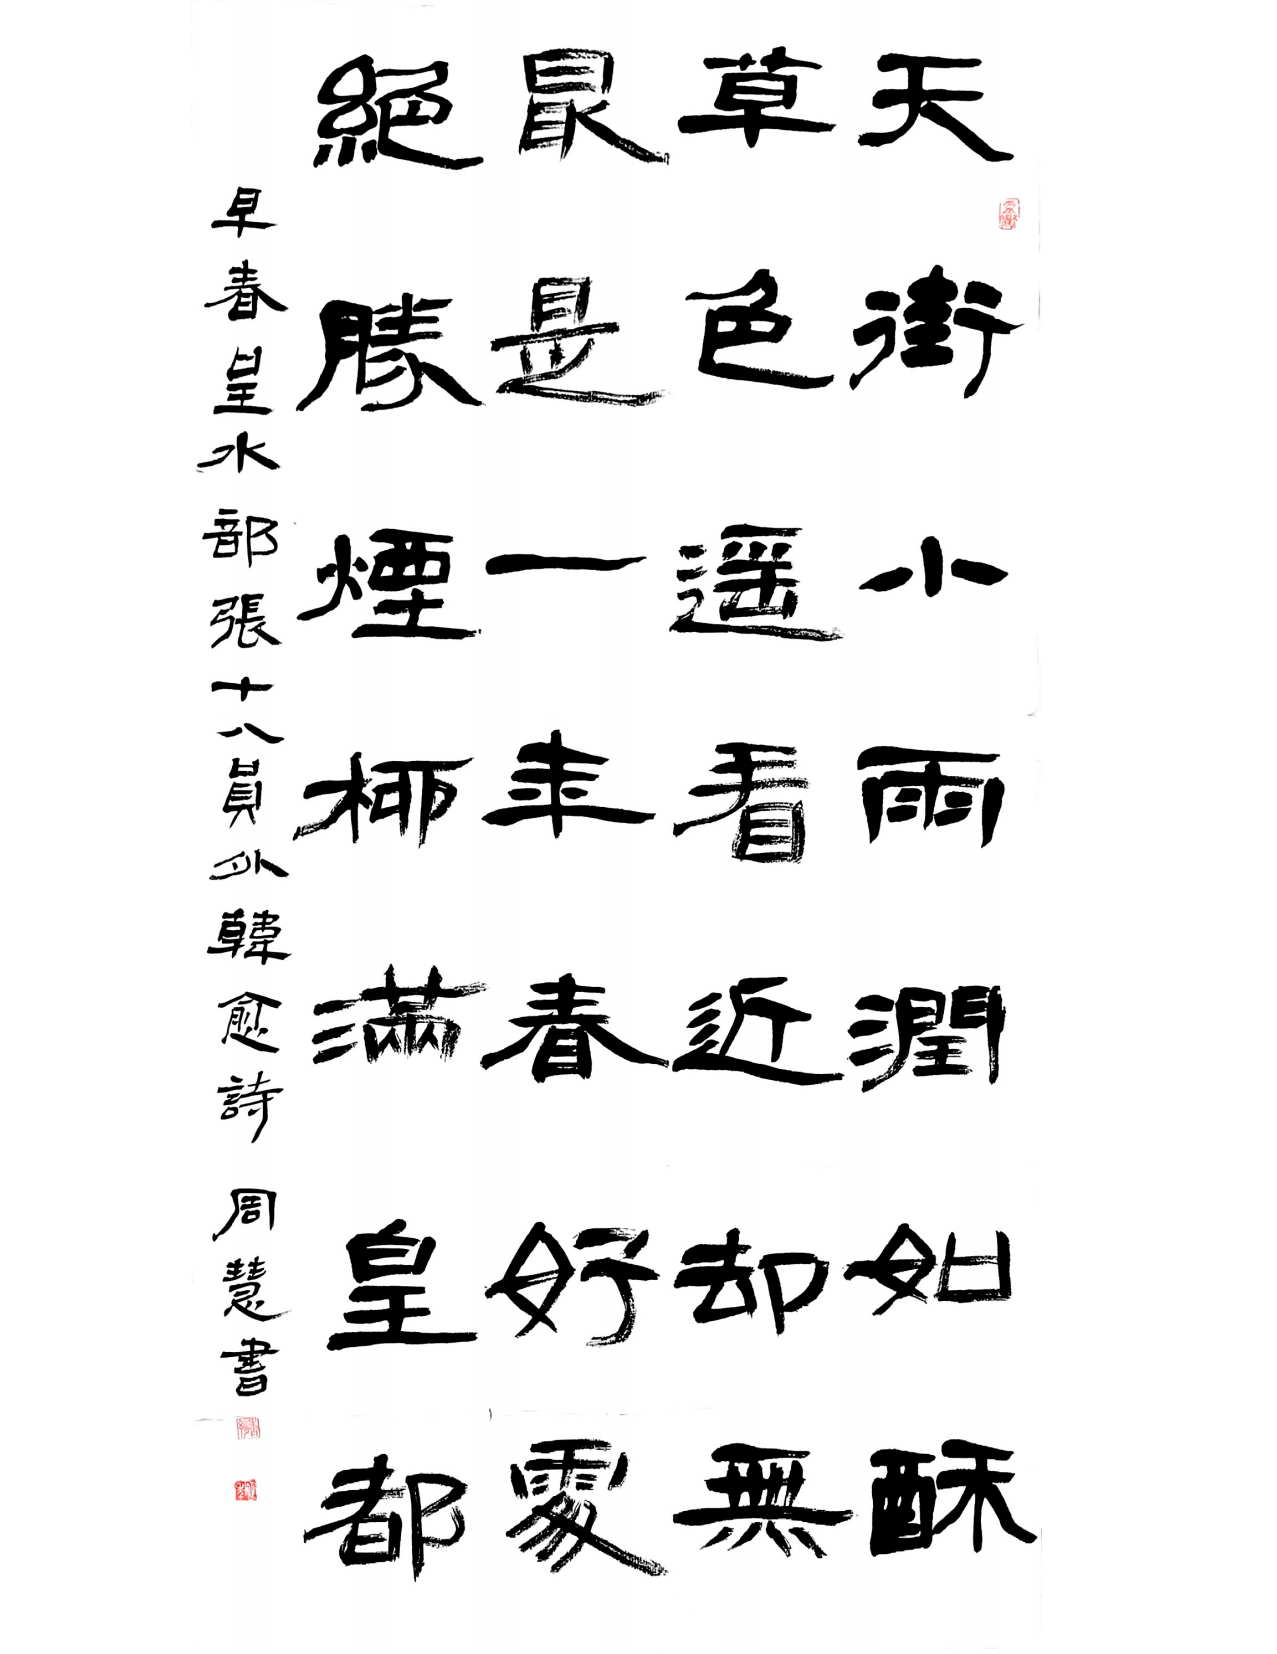 天街小雨潤如酥
草色遥看近却無
最是一年春好處
絕勝煙柳滿皇都
早春呈水部張十八員外韓愈詩 周慧書